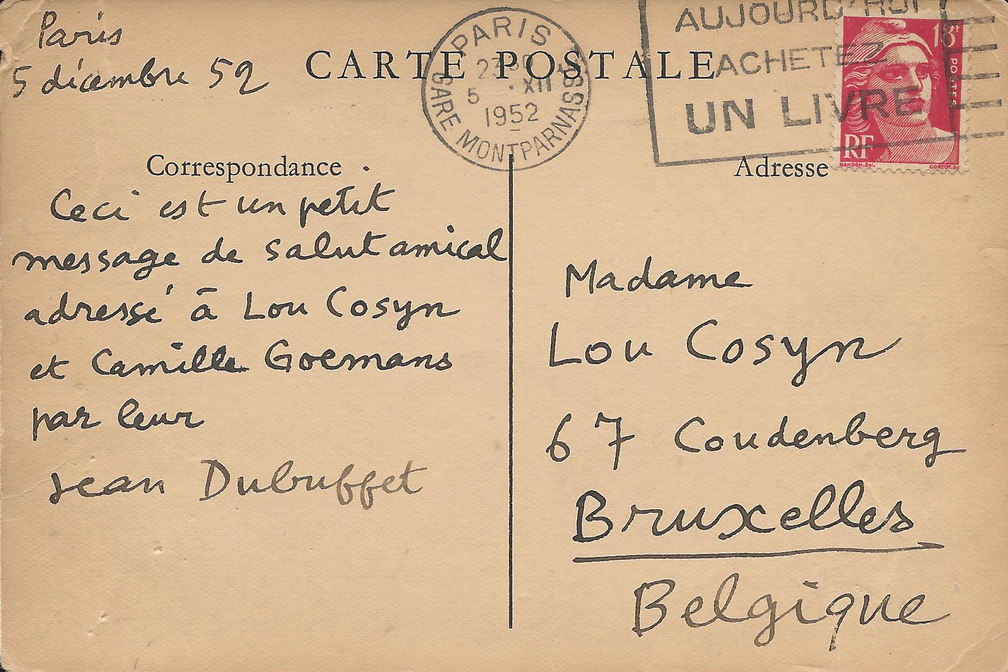 Paris
5 décembre 52
CARTE POSTALE
PARIS
5 XII
1952
GARE MONTPARNASSE
AUJOURD'HUI
ACHETEZ
UN LIVRE
18F
POSTES
RF
Correspondance
Ceci est un petit
message de salut amical
adressé à Lou Cosyn
et Camille Goemans
par leur
Jean Dubuffet
Adresse
Madame
Lou Cosyn
67 Coudenberg
Bruxelles
Belgique